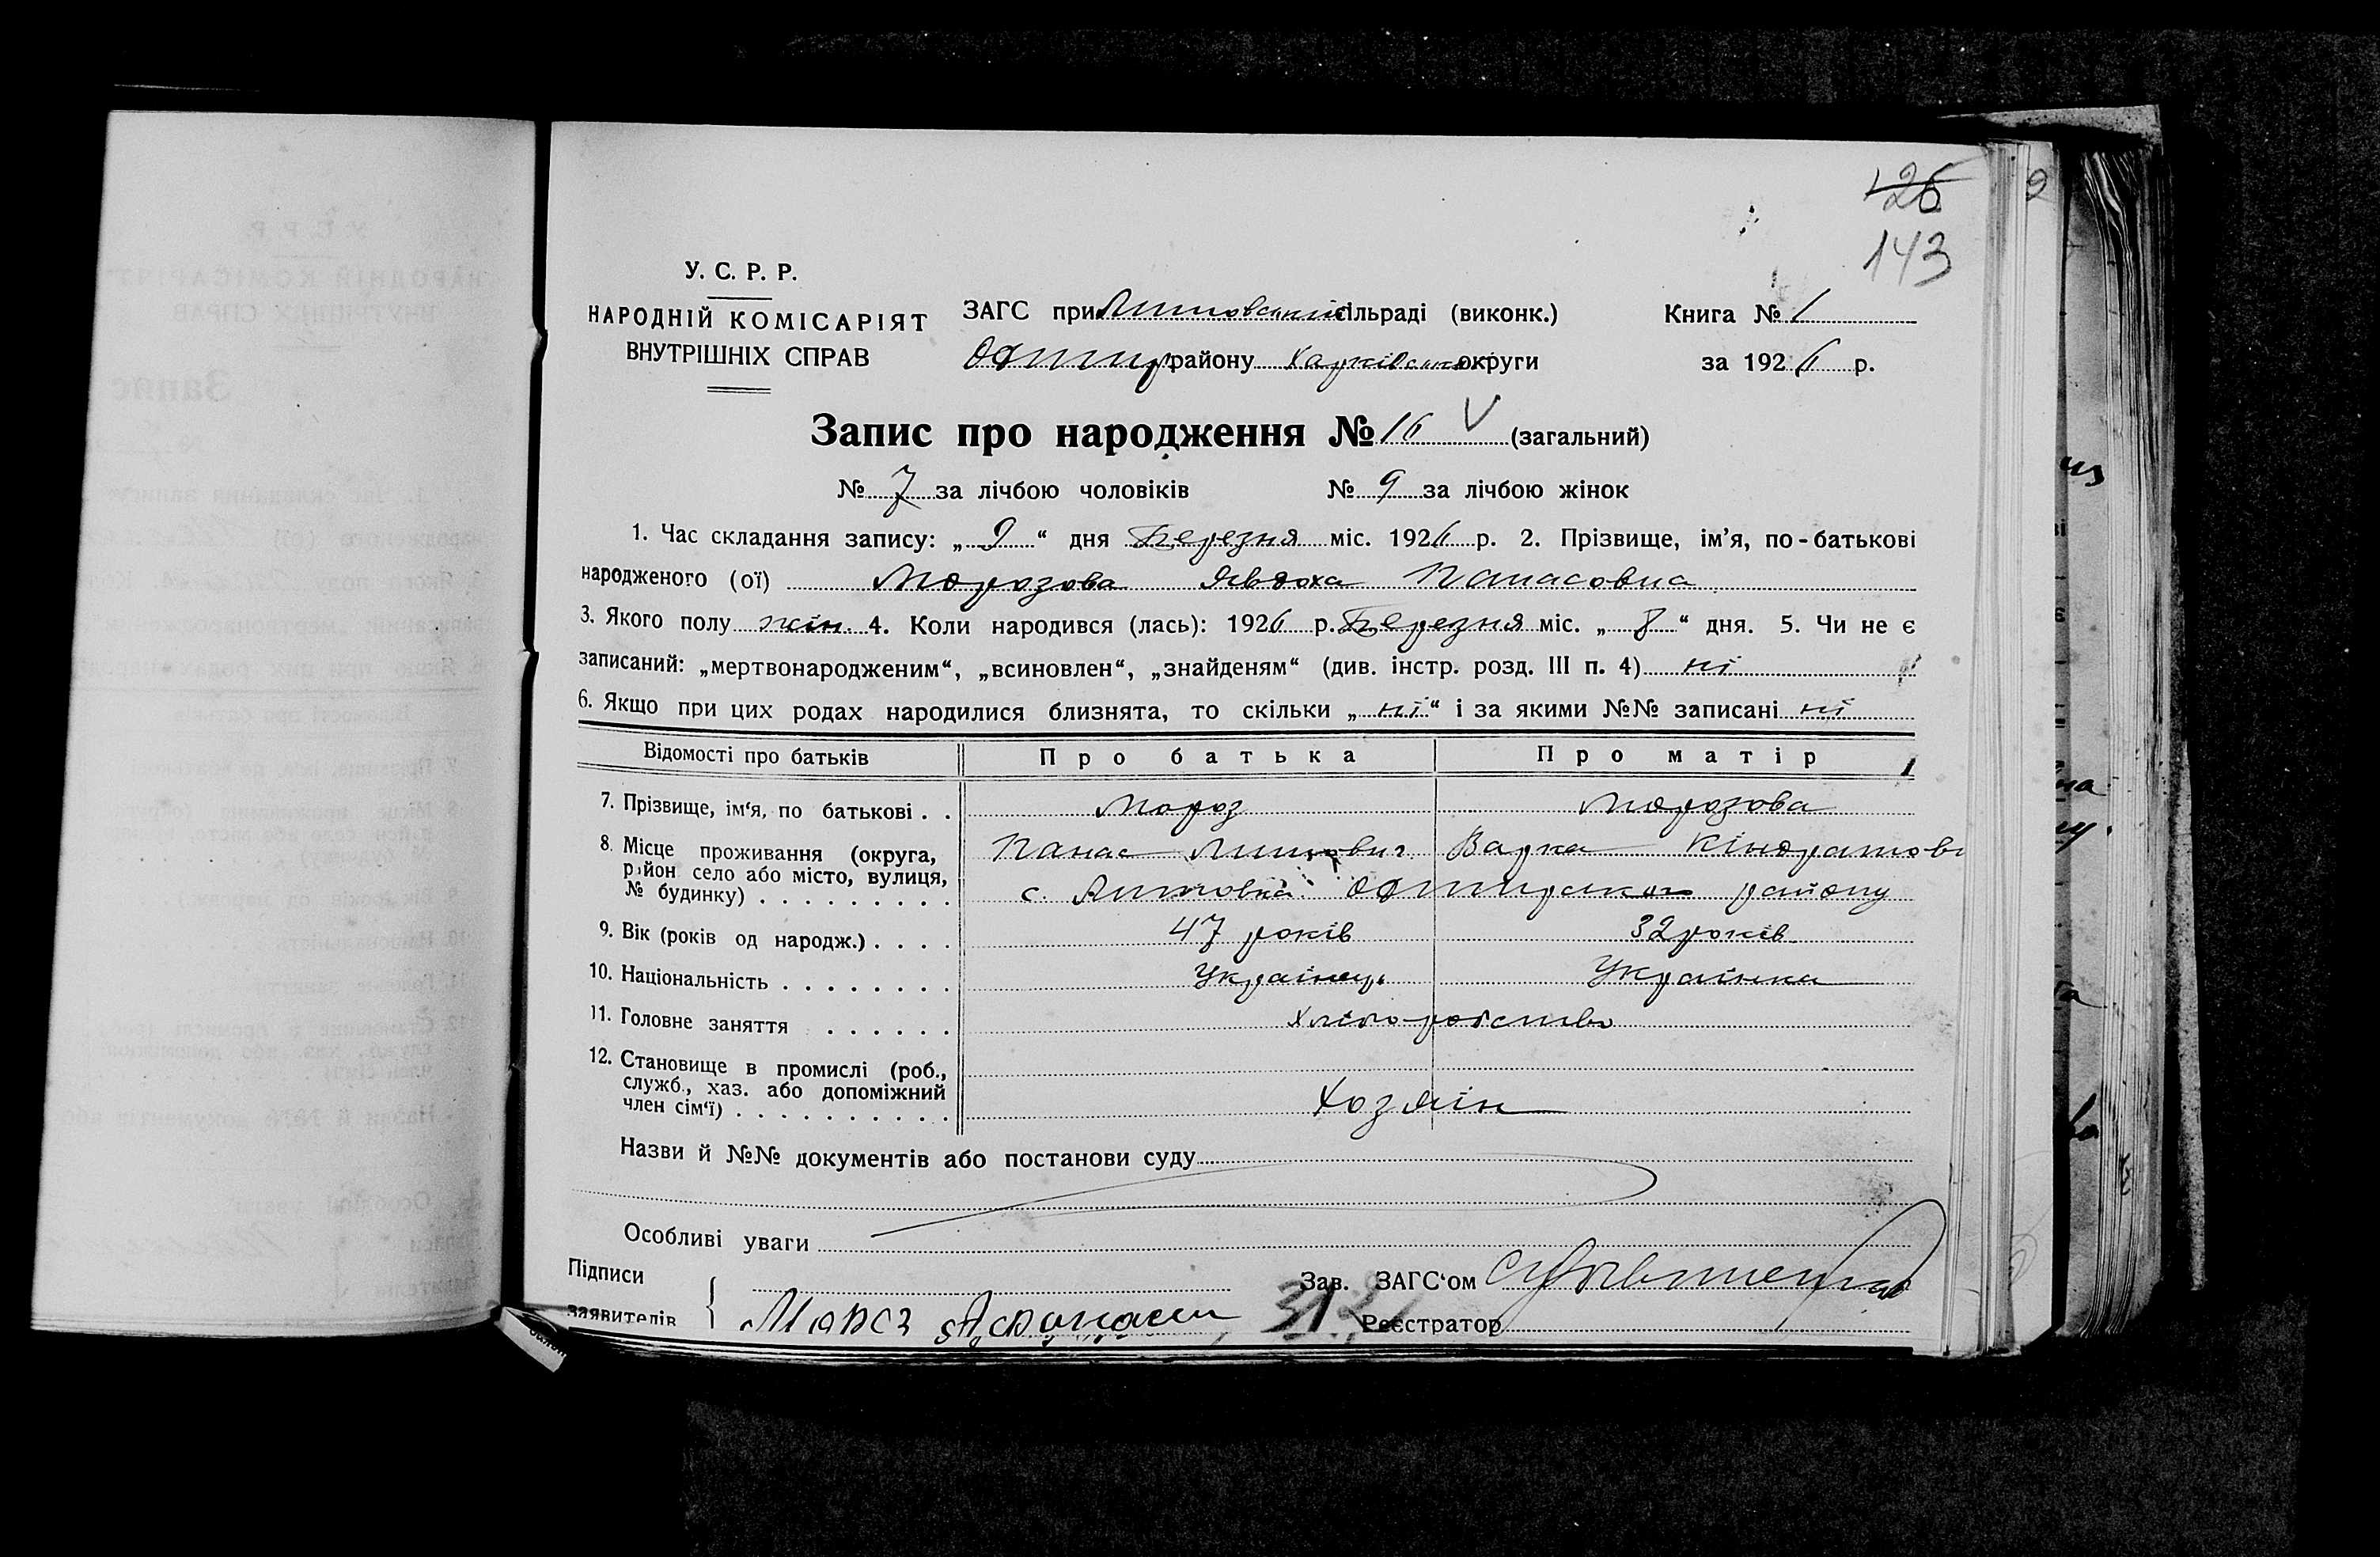 126
143
У. С. Р. Р.
НАРОДНІЙ КОМІСАРІЯТ
ВНУТРІШНІХ СПРАВ
ЗАГС при Литовській сільраді (виконк.)
району Харківської округи
Книга № 1
за 1926 р.
Запис про народження № 16 V (загальний)
№ 7 за лічбою чоловіків № 9 за лічбою жінок
1. Час складання запису: „ 9 “ дня Березня міс. 1926 р. 2. Прізвище, ім’я, по-батькові
народженого (ої) Морозова Явдоха Панасовна
3. Якого полу жін. 4. Коли народився (лась): 1926 р. Березня міс. „ 8 “ дня. 5. Чи не є
записаний: „мертвонародженим“, „всиновлен“, „знайденям“ (див. інстр. розд. III п. 4) ні
6. Якщо при цих родах народилися близнята, то скільки „ ні “ і за якими №№ записані ні
Відомості про батьків Про батька Про матір
7. Прізвище, ім‘я, по батькові . . Мороз Морозова
8. Місце проживання (округа, Панас Варка Кіндратов
район село або місто, вулиця,
№ будинку) . . . . . . . . . с. Литовка району
9. Вік (років од народж.) . . . . 47 років 32 років
10. Національність . . . . . . . . Українець Українка
11. Головне заняття . . . . . . Хліборобство
12. Становище в промислі (роб.,
служб., хаз. або допоміжний
член сім‘ї) . . . . . . . . . . Хозяїн
Назви й №№ документів або постанови суду
Особливі уваги
Підписи
заявителів { Мороз Афанаси
Зав. ЗАГС‘ом
Реєстратор